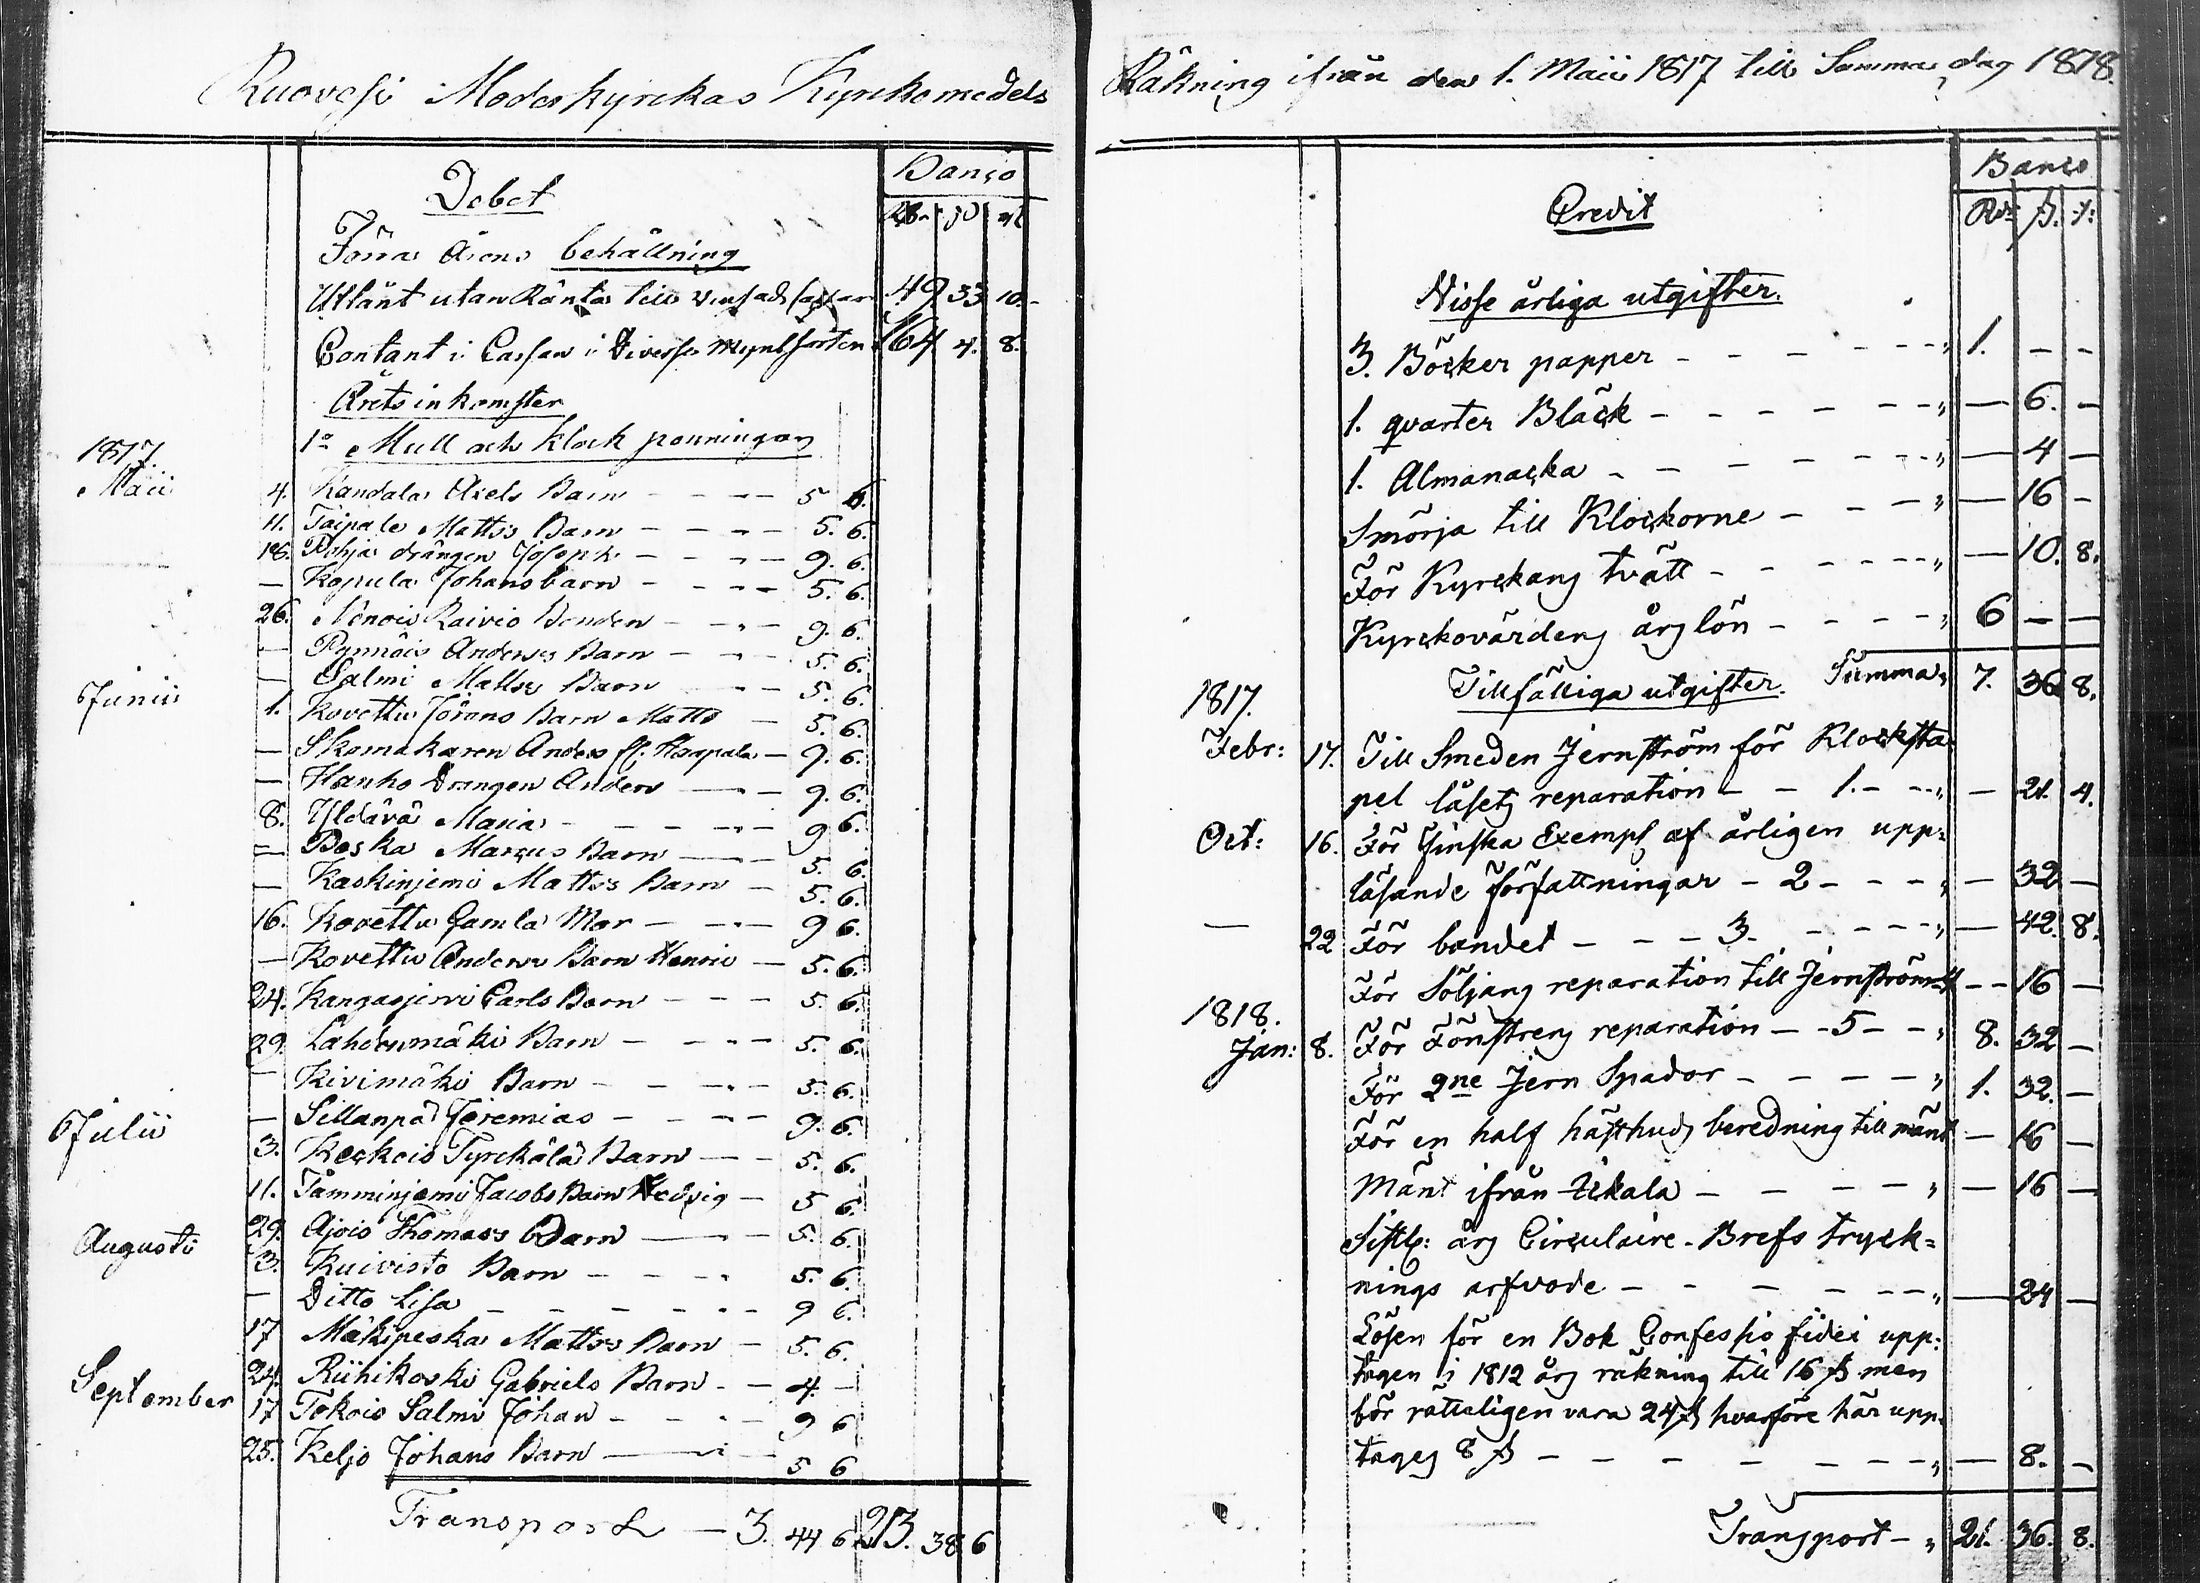 Ruovesi Moderkyrckas Kyrckomedels Räkning ifrån den 1. Maii 1817 till Samma dag 1818.
Debet
Banco
Rdr ß rst
Förra Årens behållning
Utlånt utan Ränta till 49 33 10.
Contant i Cassan i Diverse myntsorter 164 4. 8.
Årets inkomster
1o Mull och Klock penningar
1817
Maii 4. Kandala Axels Barn - - - 5 6.
11. Taipale Matts's Barn - - - - 5. 6.
18. Pohja drängen Joseph - - - - 9. 6.
— Kopula Johans barn - - - - 5. 6.
26. Raivio Bonden - - - 9. 6.
— Pynnöis Anders's Barn - - - 5. 6.
— Salmi Matts's Barn - - 5. 6.
Junii 1. Kovettu Jörans Barn Matts - 5. 6.
— Skomakaren Anders fl. Haapala - 9. 6.
— Hanho Drängen Anders - - 9. 6.
8. Yldävä Maria - - - - 9 6.
— Poska Marcus Barn - - 5. 6.
— Kaskinjemi Matts's Barn - 5. 6.
16. Kovettu Gamla Mor - - - 9 6.
— Kovettu Anders Barn Henric - 5. 6.
24. Kangasjervi Carls Barn - - - 5 6.
29. Lahdenmäki Barn - - - - 5. 6.
— Kivimäki Barn - - - - 5 6.
— Sillanpä Jeremias - - - - 9. 6.
Julii 3. Keckois Tyrckälä Barn - - 5. 6.
11. Tamminjemi Jacobs Barn Hedvig - 5 6.
29. Ajois Thomas's Barn - - 5. 6.
Augusti 3. Kuivisto Barn - - - - 5. 6.
— Ditto Lisa - - - - - - 9 6.
17 Mäkipeska Matts's Barn - 5. 6.
24. Riihikoski Gabriels Barn - - 4. -
September 17 Tokois Salmi Johan - - - - 9 6
25. Keljo Johans Barn - - 5 6
Transport - 3. 44 6 213. 38. 6
Credit
Banco
Rdr ß. r:
Visse årliga utgifter.
3. Böcker papper - - - - - - 1. - -
1. qvarter Bläck - - - - - - — 6. -
1. Almanacka - - - - - - — 4 -
Smörja till Klockorne - - - - — 16 -
För Kyrckans tvätt - - - - - - — 10. 8.
Kyrckovärdens års lön - - - - 6 - -
Summa 7. 36 8.
Tillfälliga utgifter.
1817.
Febr: 17. Till Smeden Jernström för Klocksta-
pel låsets reparation - - 1. - - - — 21. 4.
Oct: 16. För Finska Exempl af årligen upp-
läsande författningar - 2 - - - - — 32 -
— 22 För bandet - - - 3. - - - - — 42. 8.
För Söljans reparation till Jernström 4 - - 16 -
1818.
Jan: 8. För Fönstrens reparation - - 5 - - 8. 32 -
För 2ne Jern Spador - - - - 1. 32. -
För en half hästhuds beredning till mänt — 16 -
Mänt ifrån - - - - — 16 -
års Circulaire-Brefs tryck=
nings arfvode - - - - - - — 24 -
Lösen för en Bok Confessio fidei upp-
tagen i 1812 års räkning till 16 ß men
bör rätteligen vara 24 ß hvarföre här upp-
tages 8 ß - - - - - - - — 8. -
Transport - 21. 36. 8.